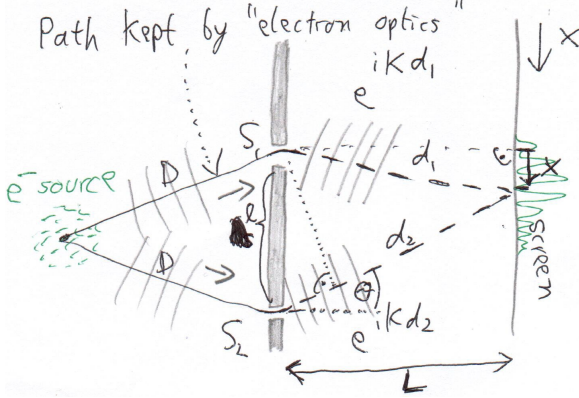 Path kept by "electron optics"
iKd₁
x
e
S₁
D
d₁
x
e⁻ source
l
d₂
screen
D
θ
iKd₂
S₂
e
L